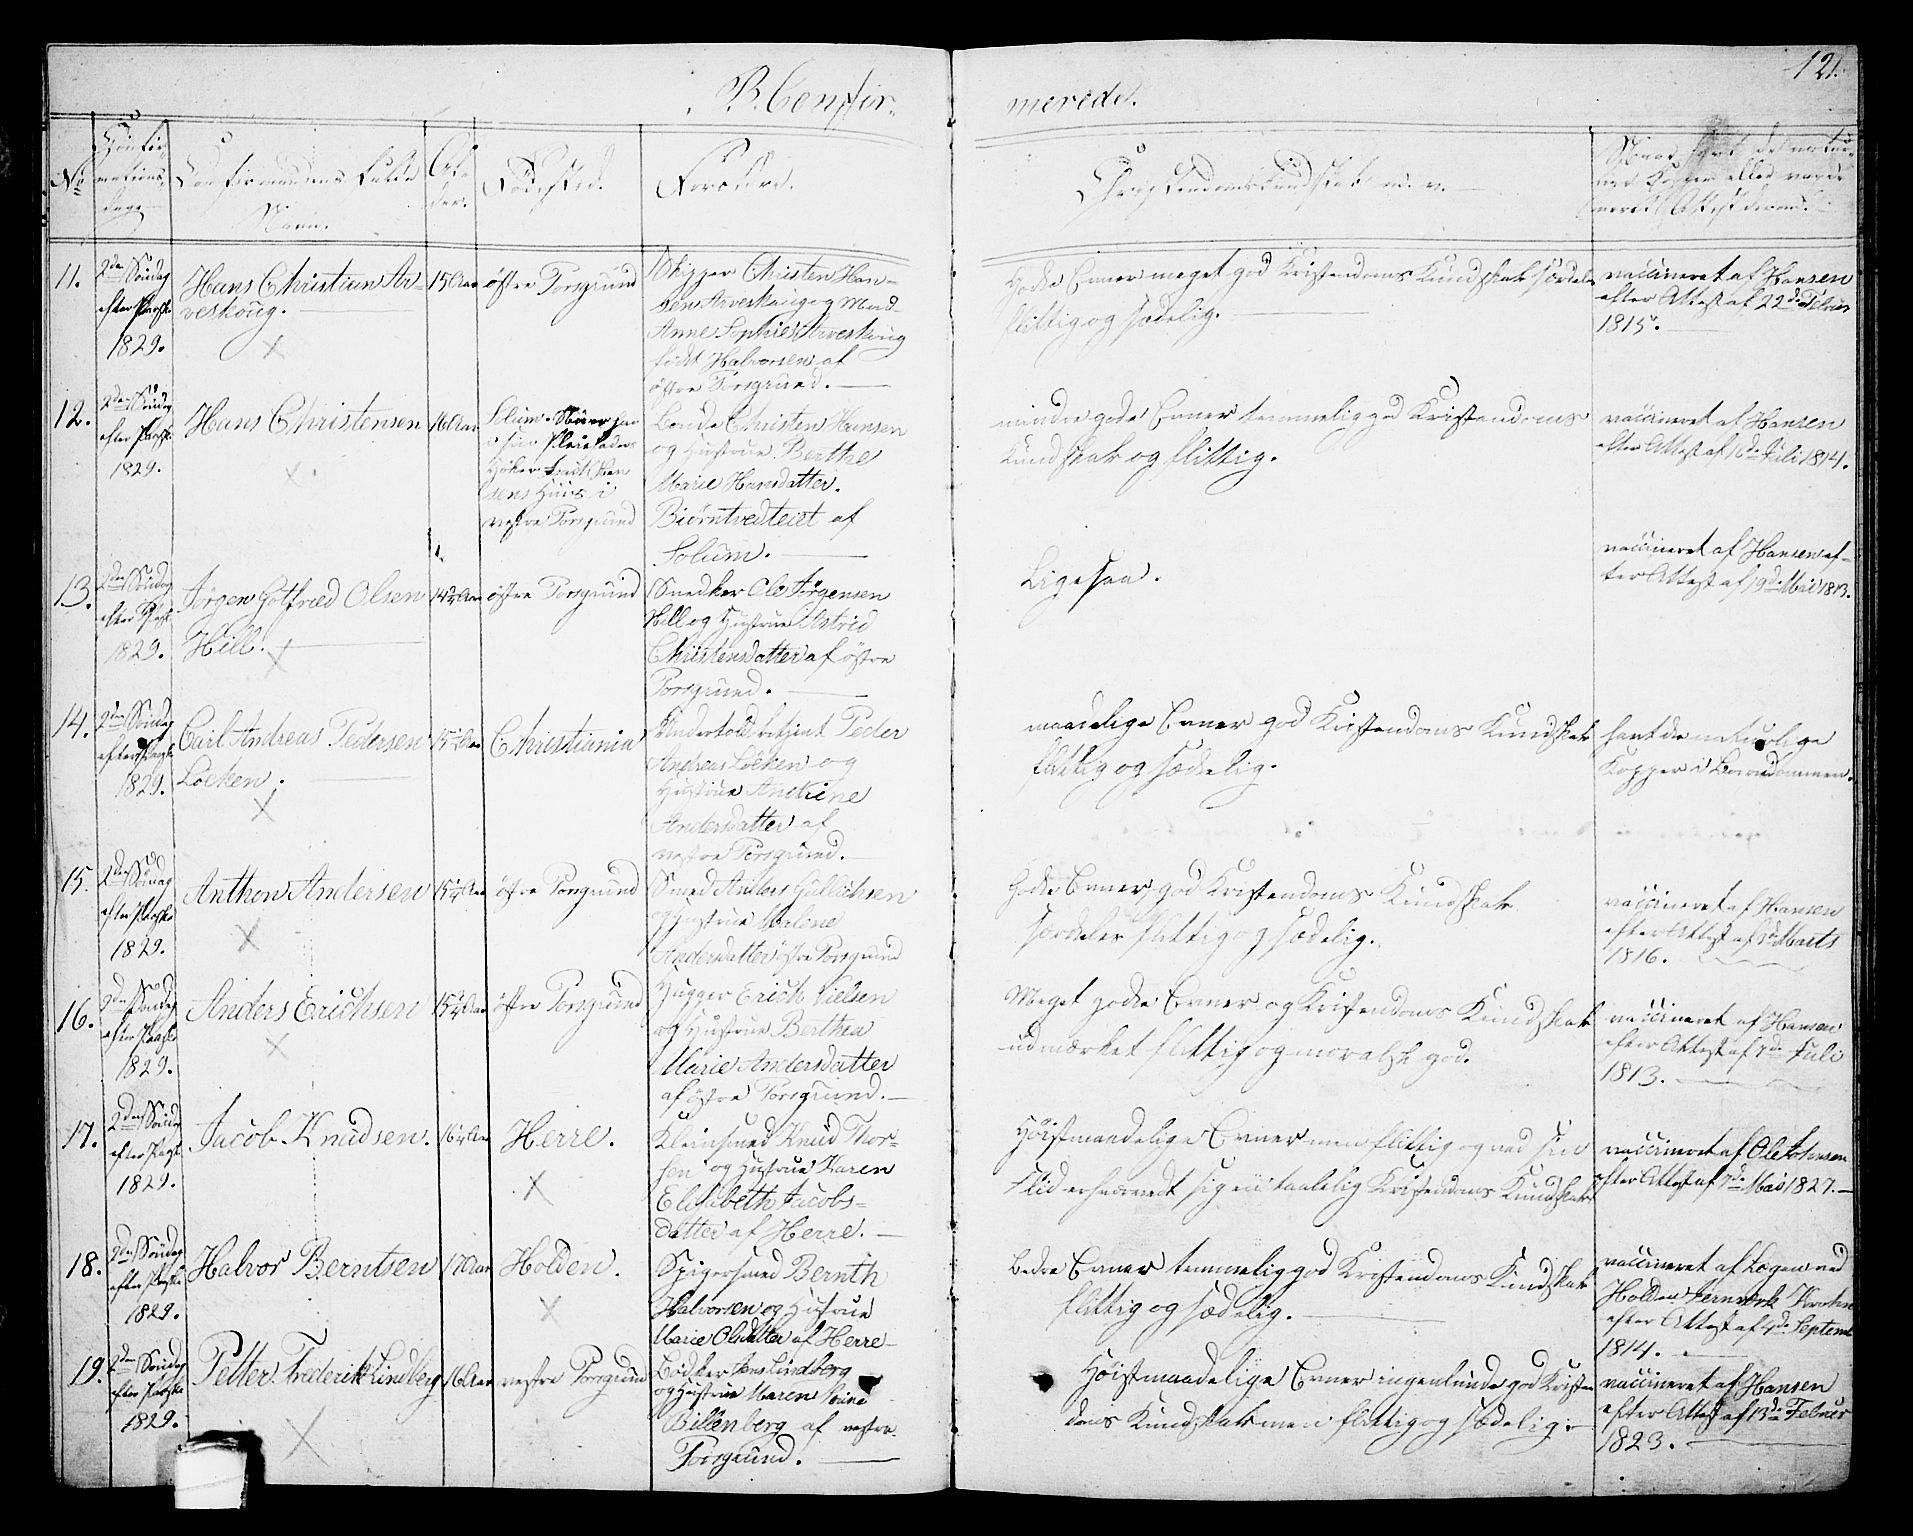 121.
B. Confir-
meredе.
No
Confir-
mations-
dage
Confirmandens fulde
Navn.
Al-
der.
Fødested.
Forældre.
Christendomskundskab m. v.
11.
2den Søndag
efter Paaske
1829.
Hans Christian Ar-
veskoug.
15 Aar
østre Porsgrund
Skipper Christen Han-
sen Arveskoug og Mad.
Anne Sophie Arveskoug
født Halvorsen af
østre Porsgrund.
Gode Evner meget god Kristendoms Kundskab særdeles
flittig og sædelig.
vaccineret af Hansen
efter Attest af 22de Febuar
1815.
12.
2den Søndag
efter Paaske
1829.
Hans Christensen
16 Aar
Solum
Huus i
vestre Porsgrund
Bonde Christen Hansen
og Hustrue Berthe
Marie Hansdatter.
Biørntvedteiet af
Solum.
mindre gode Evner temmelig god Kristendoms
Kundskab og flittig.
vaccineret af Hansen
efter Attest af 16de Juli 1814.
13.
2den Søndag
efter Paaske
1829.
Jørgen Gotfried Olsen
Hill.
14½ Aar
østre Porsgrund
Snedker Ole Jørgensen
Hill og Hustrue Astrid
Christensdatter af østre
Porsgrund.
Ligesaa.
vaccineret af Hansen ef-
ter Attest af 19de Mai 1813.
14.
2den Søndag
efter Paaske
1829.
Carl Andreas Pedersen
Löcken.
15½ Aar
Christiania
Undertoldbetjent Peder
Andreas Löcken og
Hustrue Andrine
Andersdatter af
vestre Porsgrund.
maadelige Evner god Kristendoms Kundskab
flittig og sædelig.
havt de naturlige
Kopper i Barndommen.
15.
2den Søndag
efter Paaske
1829.
Anthon Andersen
15¼ Aar
østre Porsgrund
Smed Anders Gullichsen
og Hustrue Malene
Andersdatter østre Porsgrund
Gode Evner, god Kristendoms Kundskab
særdeles flittig og sædelig.
vaccineret af Hansen
efter Attest af Marts
1816.
16.
2den Søndag
efter Paaske
1829.
Anders Erichsen
15¾ Aar
østre Porsgrund
Hugger Erich Nielsen
og Hustrue Berthea
Marie Andersdatter
af østre Porsgrund.
Meget gode Evner og Kristendoms Kundskab
udmærket flittig og moralsk god.
vaccineret af Hansen
efter Attest af 7de Juli
1813.
17.
2den Søndag
efter Paaske
1829.
Jacob Knudsen.
16¼ Aar
Herre.
Kleinsmed Knud Thor-
sen og Hustrue Karen
Elisabeth Jacobs-
datter af Herre.
Høistmaadelige Evner men flittig og ved sin
Flid erhvervedt sig en taalelig Kristendoms Kundskab
vaccineret af Ole Johnsen
efter Attest af 7de Mai 1827.
18.
2den Søndag
efter Paaske
1829.
Halvor Berntsen
17 Aar
Holden.
Spigersmed Bernth
Halvorsen og Hustrue
Marie Olsdatter af Herre
Bedre Evner temmelig god Kristendoms Kundskab
flittig og sædelig.
vaccineret af Lægen ved
Holden Jernværk Krohn
efter Attest af 4de Septemb
1814.
19.
2den Søndag
efter Paaske
1829.
Petter Frederik Lindberg
16 Aar
vestre Porsgrund
Bødker Jens Lindberg
og Hustrue Maren
Billenberg af vestre
Porsgrund.
Høistmaadelige Evner ingenlunde god Kristen
doms Kundskab men flittig og sædelig.
vaccineret af Hansen
efter Attest af 13de Febuar
1823.